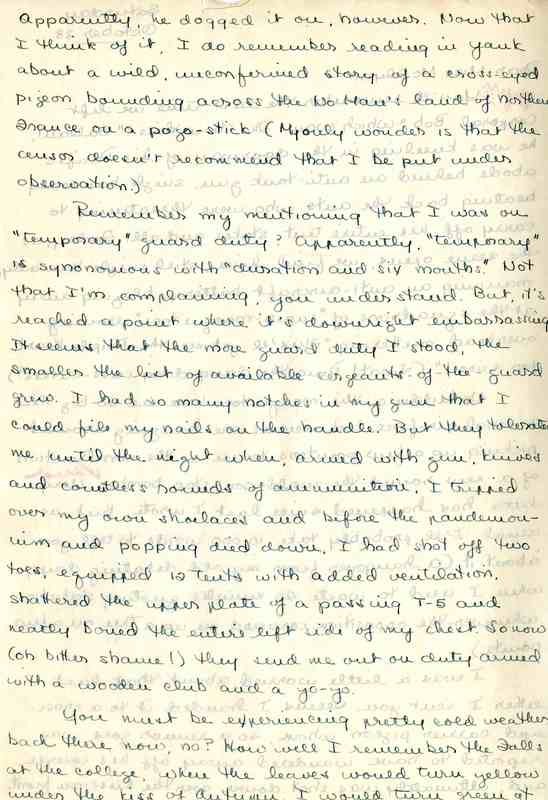 Apparently, he dogged it on, however. Now that
I think of it, I do remember reading in Yank
about a wild, unconfirmed story of a cross-eyed
pigeon bounding across the No Man's land of northern
France on a pogo-stick (My only wonder is that the
censor doesn't recommend that I be put under
observation.)
Remember my mentioning that I was on
"temporary" guard duty? Apparently, "temporary"
is synonomous with "duration and six months." Not
that I'm complaining, you understand. But, it's
reached a point where it's downright embarassing
It seems that the more guard duty I stood, the
smaller the list of available sergeants-of-the guard
grew. I had so many notches in my gun that I
could file my nails on the handle. But they tolerated
me until the night when, armed with gun, knives
and countless rounds of ammunition, I tripped
over my own shoelaces and before the pandemon-
ium and popping died down, I had shot off two
toes, equipped 10 tents with added ventilation,
shattered the upper plate of a passing T-5 and
neatly bored the entire left side of my chest. So now
(oh bitter shame!) they send me out on duty armed
with a wooden club and a yo-yo.
You must be experiencing pretty cold weather
back there now, no? How well I remember the Falls
at the college, when the leaves would turn yellow
under the kiss of Autumn, I would turn green at